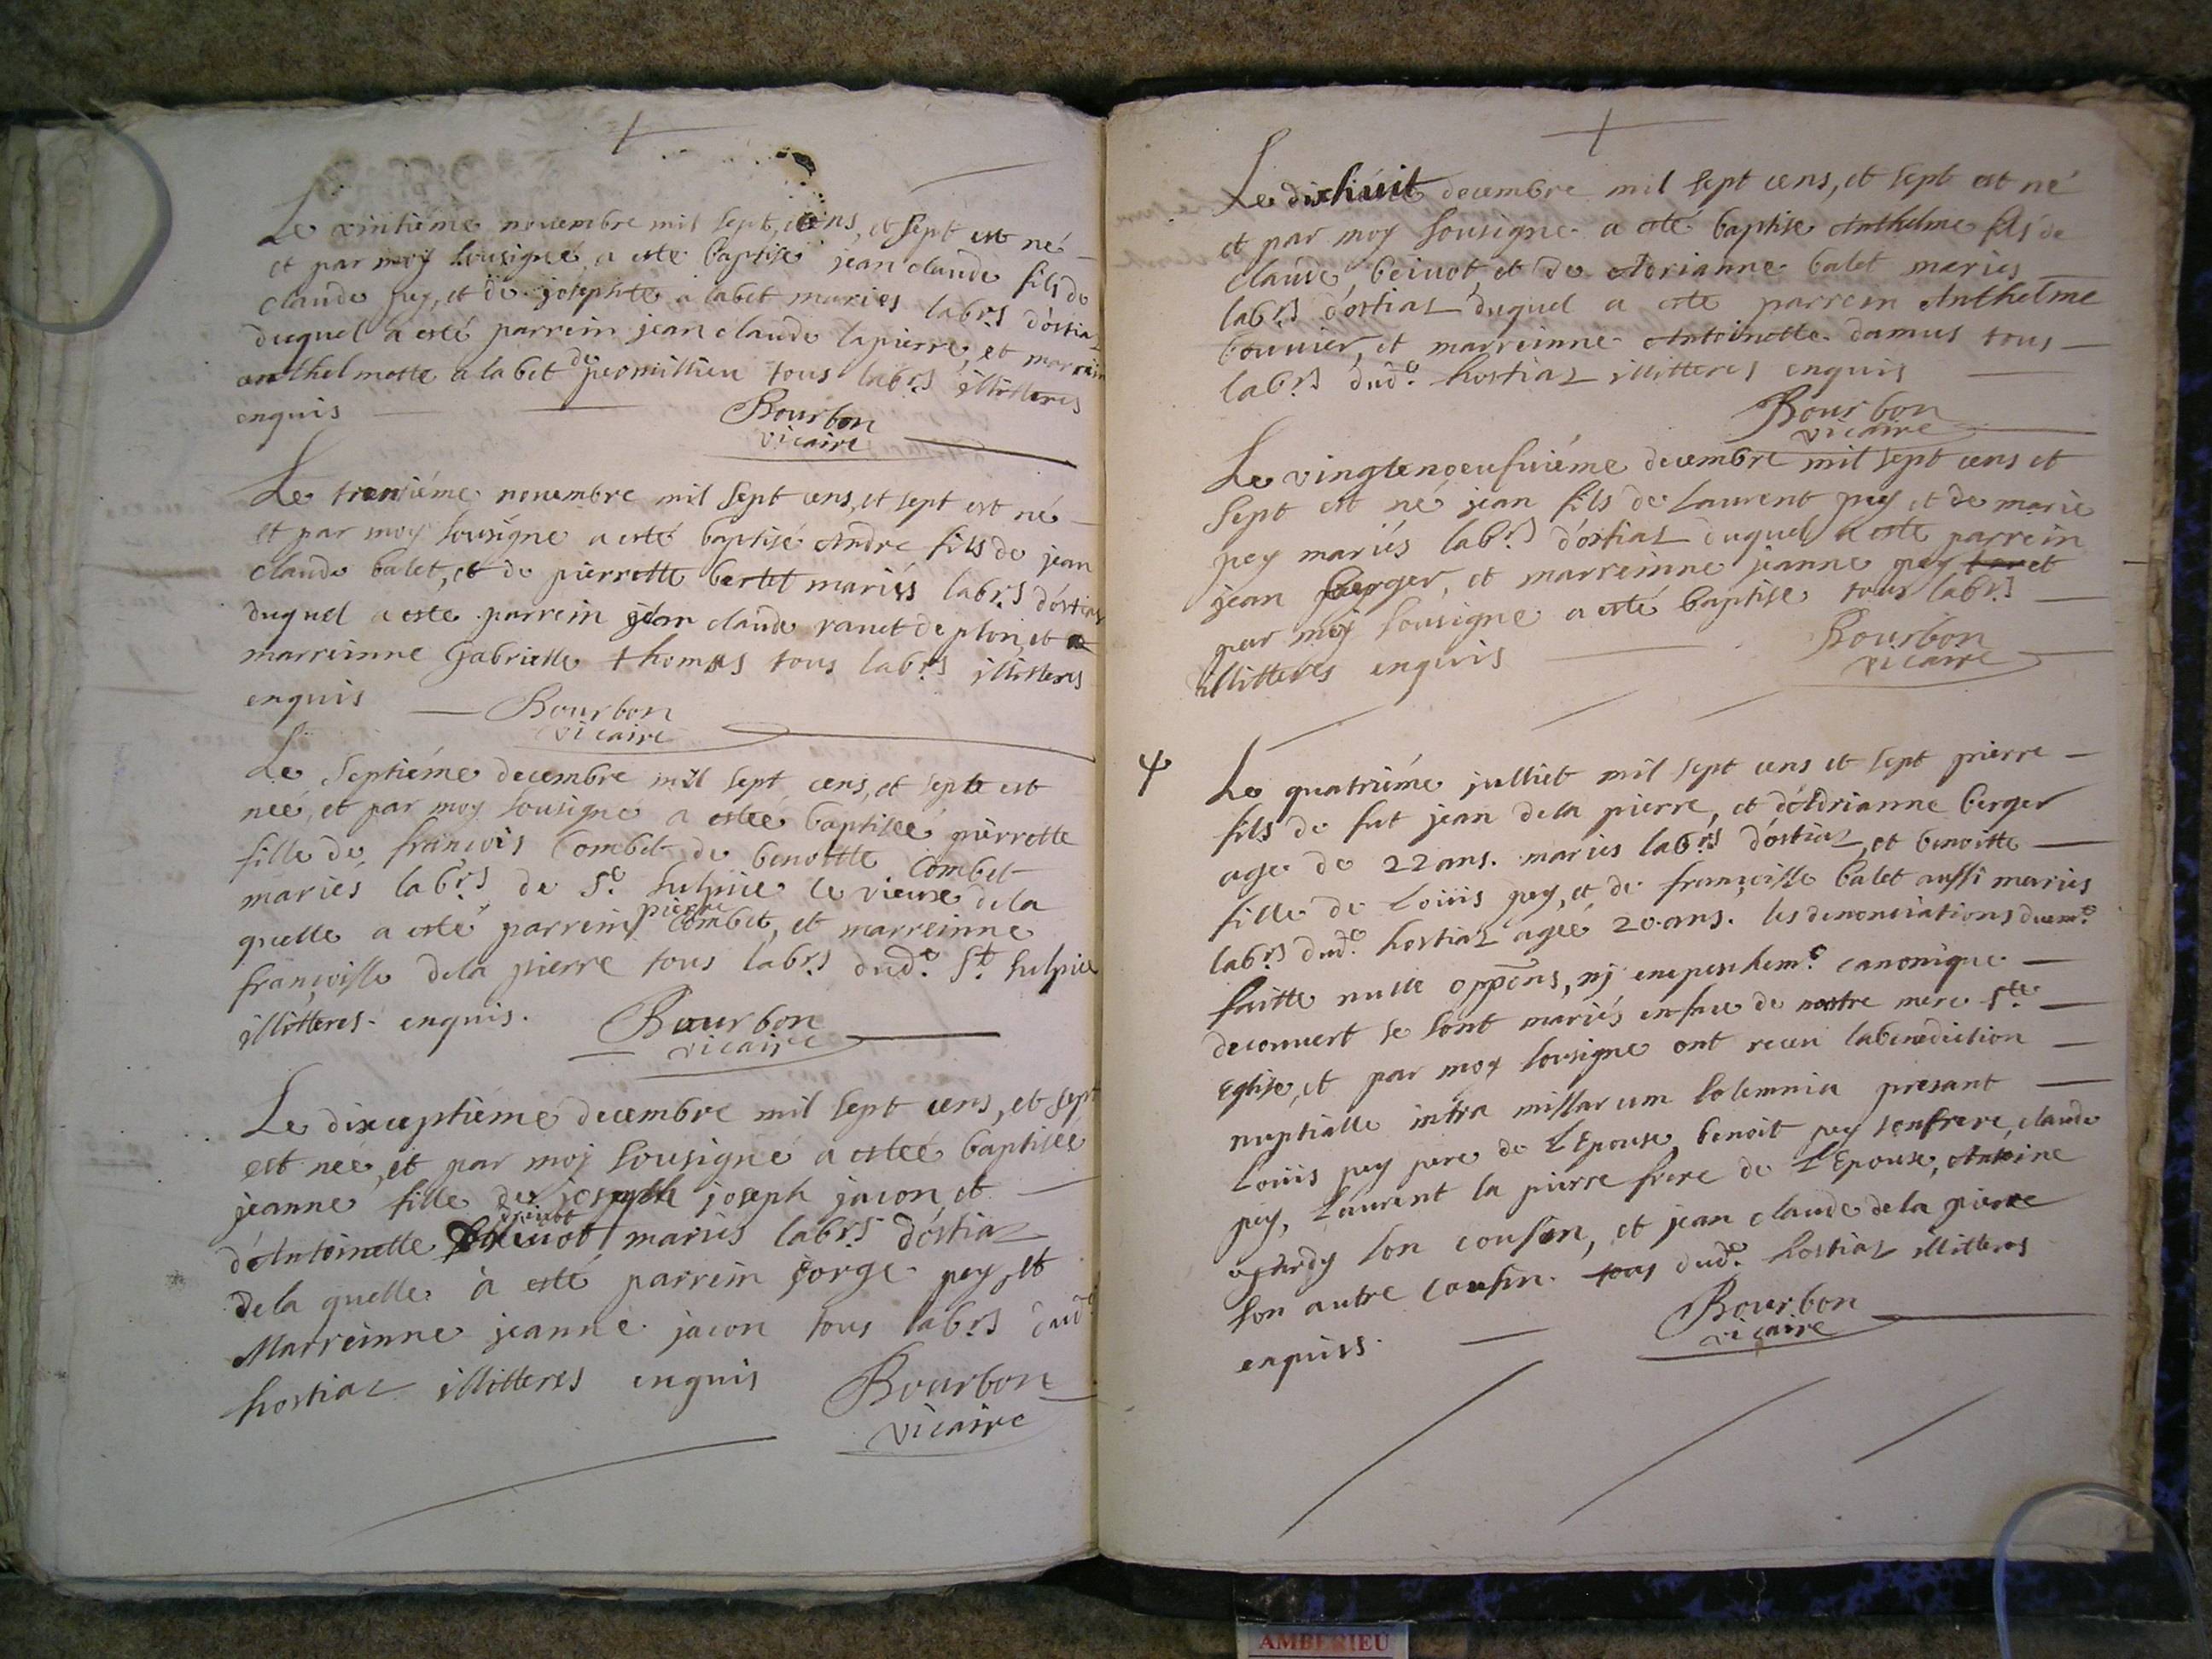 Le vintiéme novembre mil sept cens, et sept est né
et par moy sousigné a esté baptisé jean claude fils de
claude pey, et de josephte a labet mariés labrs d'ostiaz
duquel a esté parrein jean claude lapierre, et marrein
anthelmette a labet de permillieu tous labrs illitteres
enquis
Bourbon
vicaire
Le trentiéme novembre mil sept cens, et sept est né
et par moy sousigné a esté baptisé Andre fils de jean
claude balet, et de pierrette bertet mariés labrs d'ostiaz
duquel a esté parrein jean claude ravet de plon, et
marreinne Gabrielle thomas tous labrs illitteres
enquis
Bourbon
vicaire
Le Septiéme decembre mil sept cens, et septe est
neé, et par moy sousigné a esteé baptiseé pierrette
fille de francois Combet de benoitte Combet
mariés labrs de St. Sulpice le vieux de la
quelle a esté parrein pierre Combet, et marreinne
françoisse dela pierre tous labrs dude. St. Sulpice
illitteres enquis.
Bourbon
vicaire
Le dixceptiéme decembre mil sept cens, et sept
est neé, et par moy sousigné a esteé baptiseé
jeanne fille de joseph joseph jacon, et
d'Antoinette mariés labrs d'ostiaz
dela quelle à esté parrein jorge pey, et
Marreinne jeanne jacon tous labrs dude
hostiaz illitteres enquis
Bourbon
vicaire
Le dixhuit decembre mil sept cens, et sept est né
et par moy sousigné a esté baptisé Anthelme fils de
claude beivot, et de Adrianne balet mariés
labrs d'ostiaz duquel a esté parrein Anthelme
bouvier, et marreinne Antoinette damus tous
labrs dude. hostiaz illitteres enquis
Bourbon
vicaire
Le vingtenoeufviéme decembre mil sept cens et
sept est né jean fils de Laurent pey et de marie
pey mariés labrs d'ostiaz duquel a esté parrein
jean berger, et marreinne jeanne pey et
par moy sousigné a esté baptisé tous labrs
illitteres enquis
Bourbon
vicaire
Le quatriéme julliet mil sept cens et sept pierre
fils de fut jean dela pierre, et d'Adrianne berger
age de 22 ans. mariés labrs d'ostiaz, et benoitte
fille de Loüis pey, et de françoisse balet aussi mariés
labrs dude. hostiaz ageé 20 ans. les denonciations duemt.
faitte nulle oppõns, nj empeschemt. canonique
decouvert se sont mariés en face de nostre mere Ste.
Eglise, et par moy sousigné ont receu labenediction
nuptialle intra missarum solemnia presant
Loüis pey pere de L'Epouse, benoit pey son frere, claude
pey, Laurent la pierre frere de L'Epouse, Antoine
son cousin, et jean claude dela pierre
son autre cousin. tous dude. hostiaz illitteres
enquiss.
Bourbon
vicaire
AMBERIEU